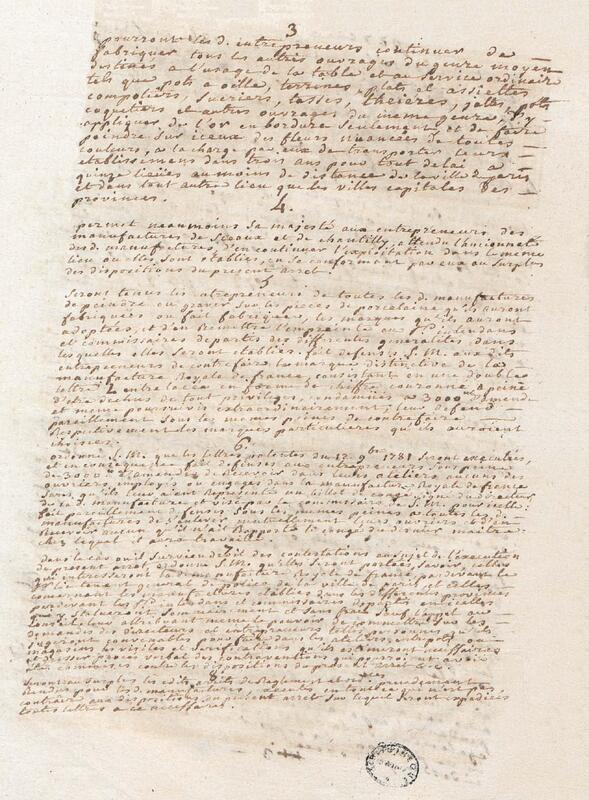 3
pourront les d. entrepreneurs continuer de
fabriquer tous les autres ouvrages du genre moyen
destinés a l'usage de la table et au service ordinaire
tels que pots a oille, terrines, plats et assiettes
compotiers, sucriers, tasses, theieres, jattes, pots
coquetiers et autres ouvrages du meme genre, d'y
appliquer de l'or en bordure seulement et de faire
peindre sur iceux des fleurs nuancées de toutes
couleurs, a la charge par eux de transporter leurs
etablissemens dans trois ans pour tout delai a
quinze lieües au moins de distance de la ville de paris
et dans tout autre lieu que les villes capitales des
provinces.
4.
permet neanmoins sa majesté aux entrepreneurs des
manufactures de Sceaux et de chantilly, attendu l'ancienneté
des d. manufactures, d'en continuer l'exploitation dans le meme
lieu ou elles sont etablies, en se conformant par eux au surplus
des dispositions du present arret
5
Seront tenus les entrepreneurs de toutes les d. manufactures
de peindre ou graver sur les pieces de porcelaine qu'ils auront
fabriquées ou fait fabriquer, les marques qu'ils auront
adoptées, et d'en remettre l'empreinte aux Intendans
et commissaires departis des differentes generalités dans
lesquelles elles seront etablies. fait defenses S. M. aux dits
entrepreneurs de contrefaire la marque distinctive de la
manufacture Royale de france, consistant en une double
lettre L entrelacée en forme de chiffre couronné, a peine
d'etre dechus de tout privilege, condamnés a 3000 d'amende
et meme poursuivis extraordinairement; leur defend
pareillement sous les memes peines de contrefaire
Respectivement les marques particulieres qu'ils auroient
choisies.
6.
ordonne S. M. que les lettres patentes du 9bre 1781 seront executées,
et en consequence fait defenses aux entrepreneurs sous peine
de 3000 d'amende de recevoir dans leurs ateliers aucuns des
ouvriers employés ou engagés dans la manufacture Royale de france
sans qu'ils leur aient representé un billet de congé signé du directeur
de la d. manufacture et visé par le commissaire de S. M. pour icelle;
fait pareillement defenses sous les memes peines a toutes les d.
manufactures de s'enlever mutuellement leurs ouvriers et d'en
recevoir aucun qu'il n'ait rapporté le congé du dernier maitre
chez lequel il aura travaillé.
7
dans le cas ou il surviendroit des contestations au sujet de l'execution
du present arret, ordonne S. M. qu'elles seront portées, savoir, celles
qui interesseront la manufacture Royale de france, pardevant le
lieutenant general de police de la ville de paris, et celles
concernant les manufactures etablies dans les differentes provinces
pardevant les Intendans et commissaires departis en icelles
pour y statuer sommairement et sans frais, sauf l'appel au
Conseil; leur attribuant meme le pouvoir de commettre sur les
demandes des directeurs ou entrepreneurs telles personnes qu'ils
jugeront convenables pour faire dans les ateliers, entrepots ou
magasins les visites et verifications qu'ils estimeront necessaires
et dresser procès verbal des contraventions qui pourroient avoir
été commises contre les dispositions du present arret.
8.
Seront au surplus les edits, arrets et Reglemens
Rendus pour les d. manufactures, executés en tout ce qui n'est pas
contraire aux dispositions du present arret sur lequel seront expediées
toutes lettres a ce necessaires.